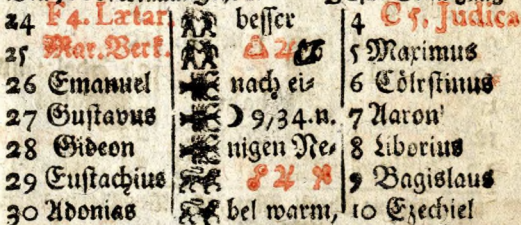 24 F 4. Lætar. besser 4 C 5. Judica
25 Mar. Verk. 5 Maximus
26 Emanuel nach ei- 6 Cölestinus
27 Gustavus ☽ 9,34.n. 7 Aaron
28 Gideon nigen Ne- 8 Liborius
29 Eustachius ☍ ♃ 9 Bagislaus
30 Adonias bel warm, 10 Ezechiel